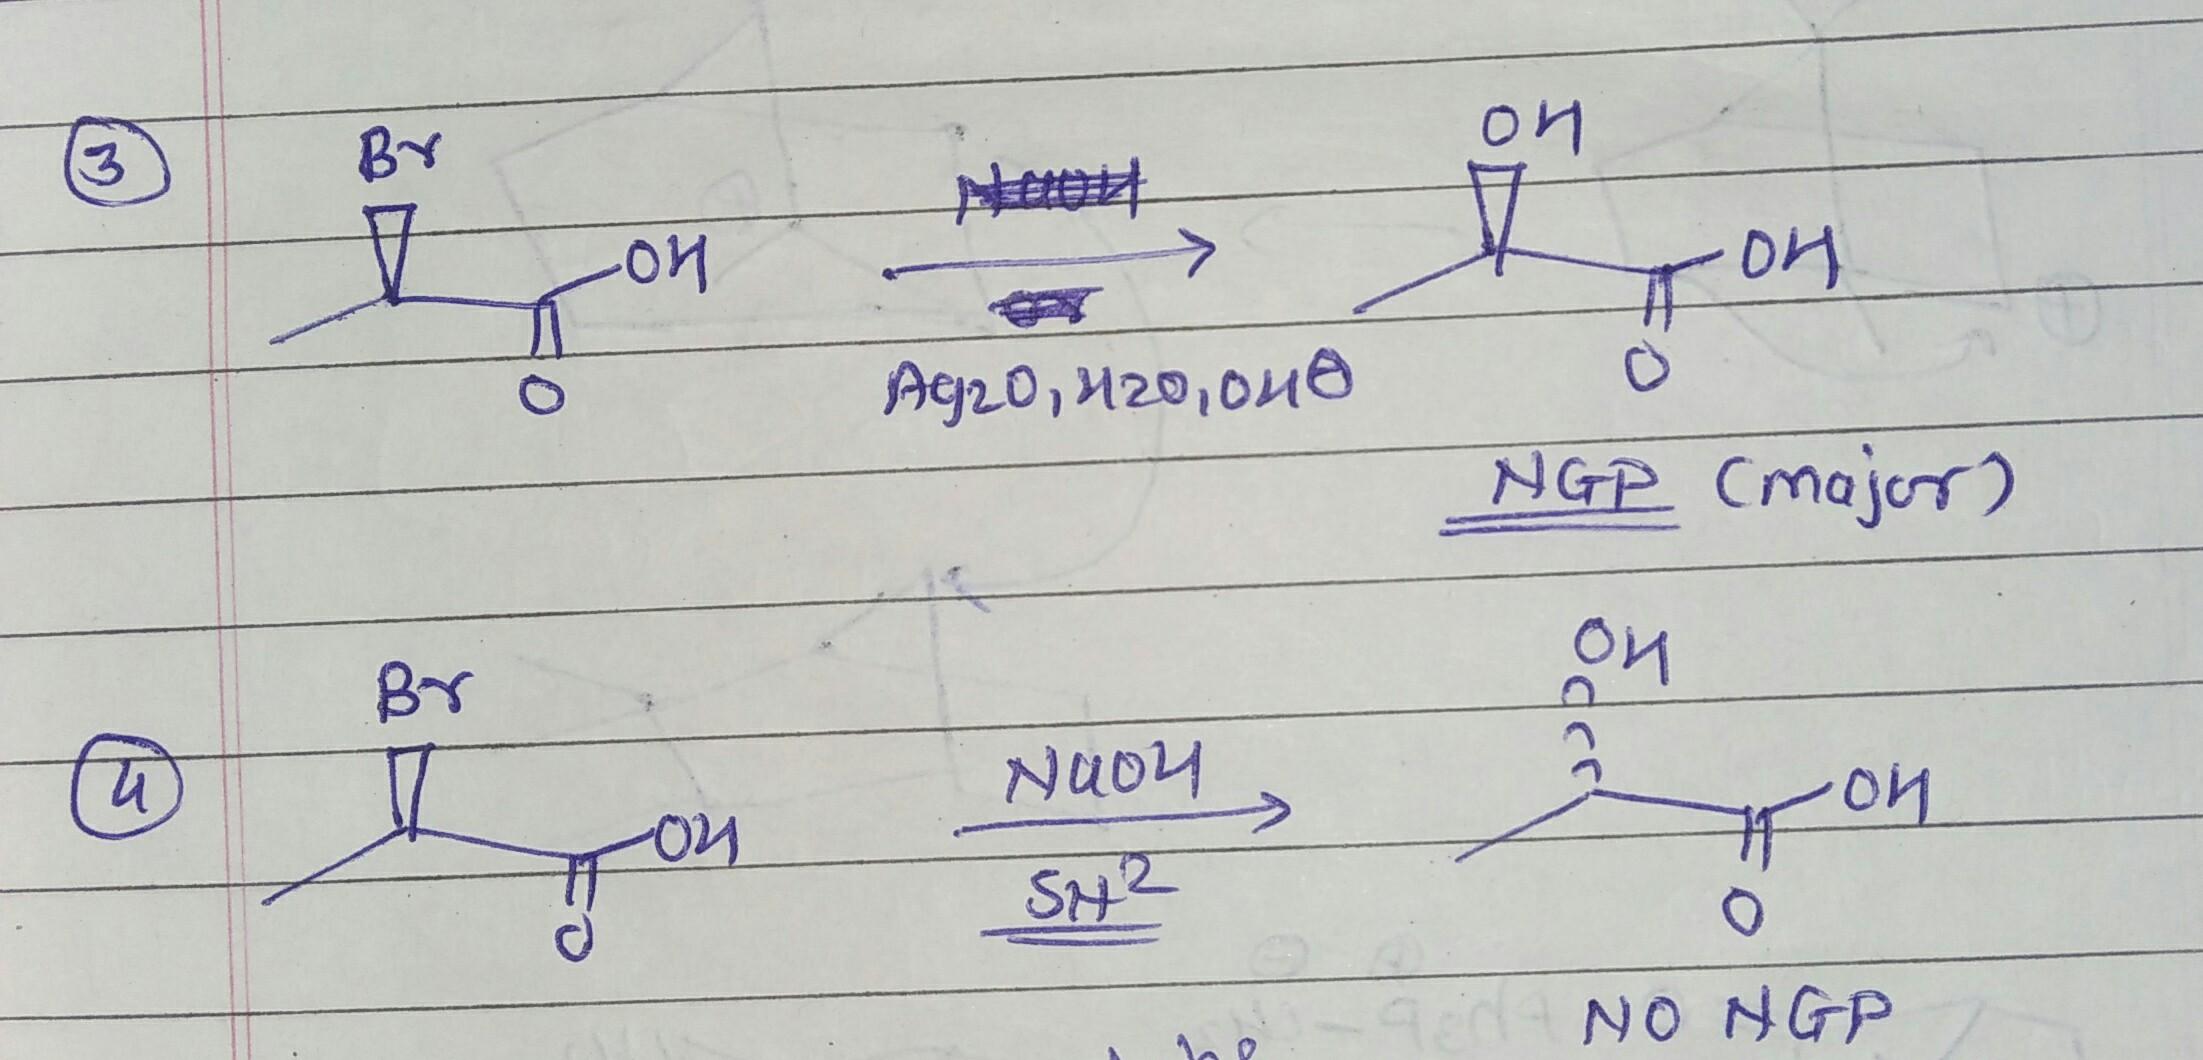 ③
Br
OH
O
Ag2O, H2O, OH⊖
OH
OH
O
NGP (major)
④
Br
OH
O
NaOH
SN2
OH
OH
O
NO NGP